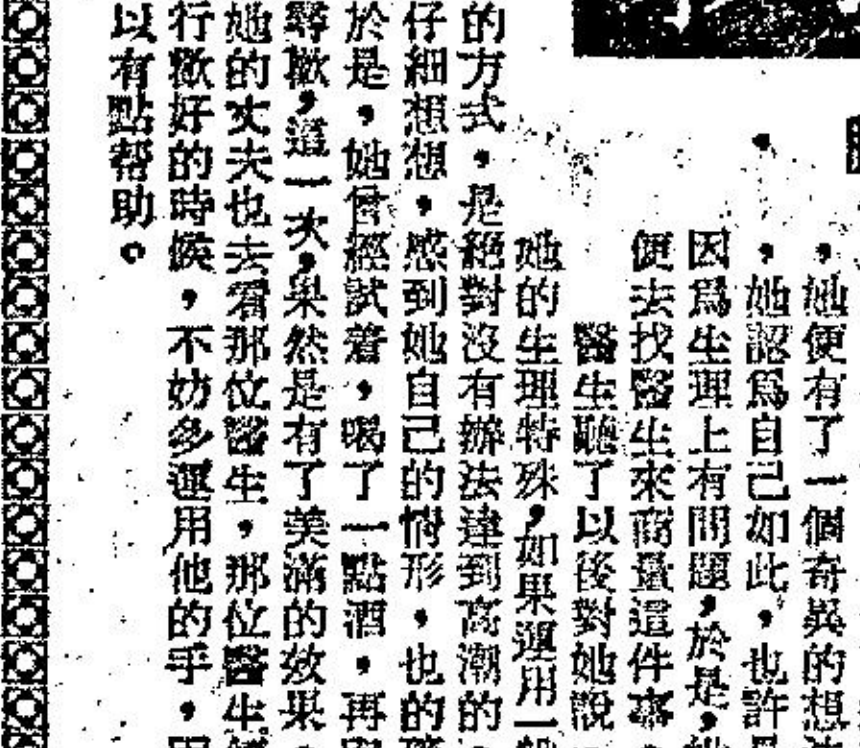 ，她便有了一個奇異的想
，她認爲自己如此，也許
因爲生理上有問題，於是，
便去找醫生來商量這件事
醫生聽了以後對她說
她的生理特殊，如果運用一般
的方式，是絕對沒有辦法達到高潮的，
仔細想想，感到她自己的情形，也的確
於是，她曾經試着，喝了一點酒，再
尋歡，這一次，果然是有了美滿的效果。
她的丈夫也去看那位醫生，那位醫生
行歡好的時候，不妨多運用他的手，
以有點帮助。